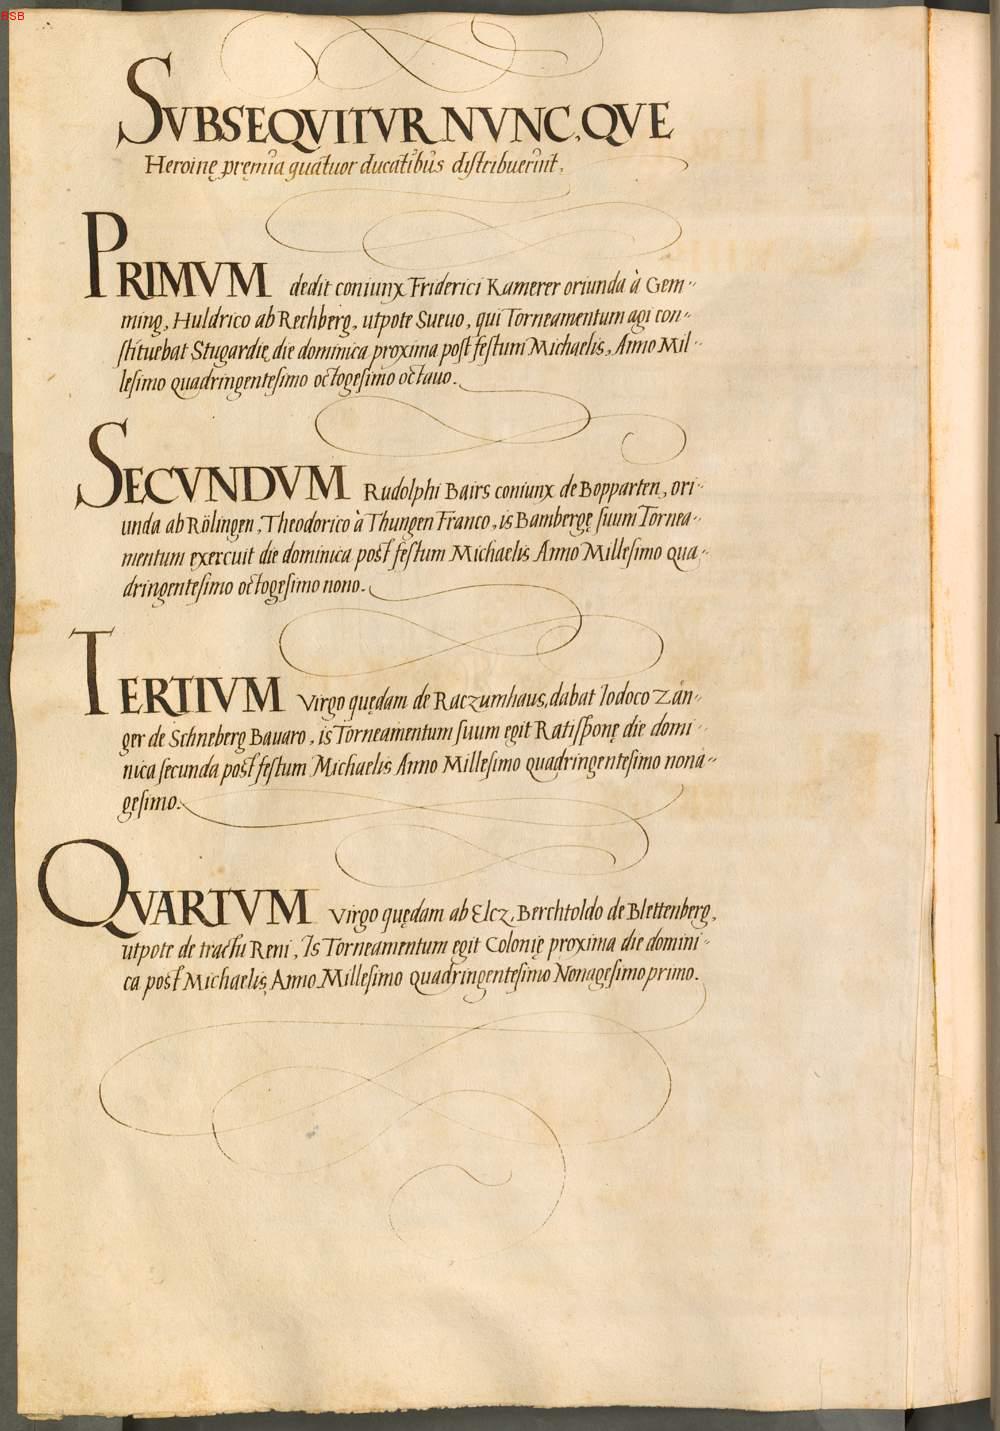 BSB
SVBSEQVITVR NVNC, QVE
Heroinę pręmia quatuor ducatibus distribuerunt.
PRIMVM dedit coniunx Friderici Kamerer oriunda à Gem-
ming, Huldrico ab Rechberg, utpote Sueuo, qui Torneamentum agi con-
stituebat Stugardię die dominica proxima post festum Michaelis, Anno Mil-
lesimo quadringentesimo octogesimo octauo.
SECVNDVM Rudolphi Bairs coniunx de Bopparten, ori-
unda ab Rölingen, Theodorico à Thungen Franco, is Bambergę suum Tornea-
mentum exercuit die dominica post festum Michaelis Anno Millesimo qua-
dringentesimo octogesimo nono.
TERTIVM Virgo quędam de Raczumhaus, dabat Iodoco Zän-
ger de Schneberg Bauaro, is Torneamentum suum egit Ratisponę die domi-
nica secunda post festum Michaelis Anno Millesimo quadringentesimo nona-
gesimo.
QVARTVM Virgo quędam ab Elcz, Berchtoldo de Blettenberg,
utpote de tractu Reni, Is Torneamentum egit Colonię proxima die domini-
ca post Michaelis, Anno Millesimo quadringentesimo Nonagesimo primo.